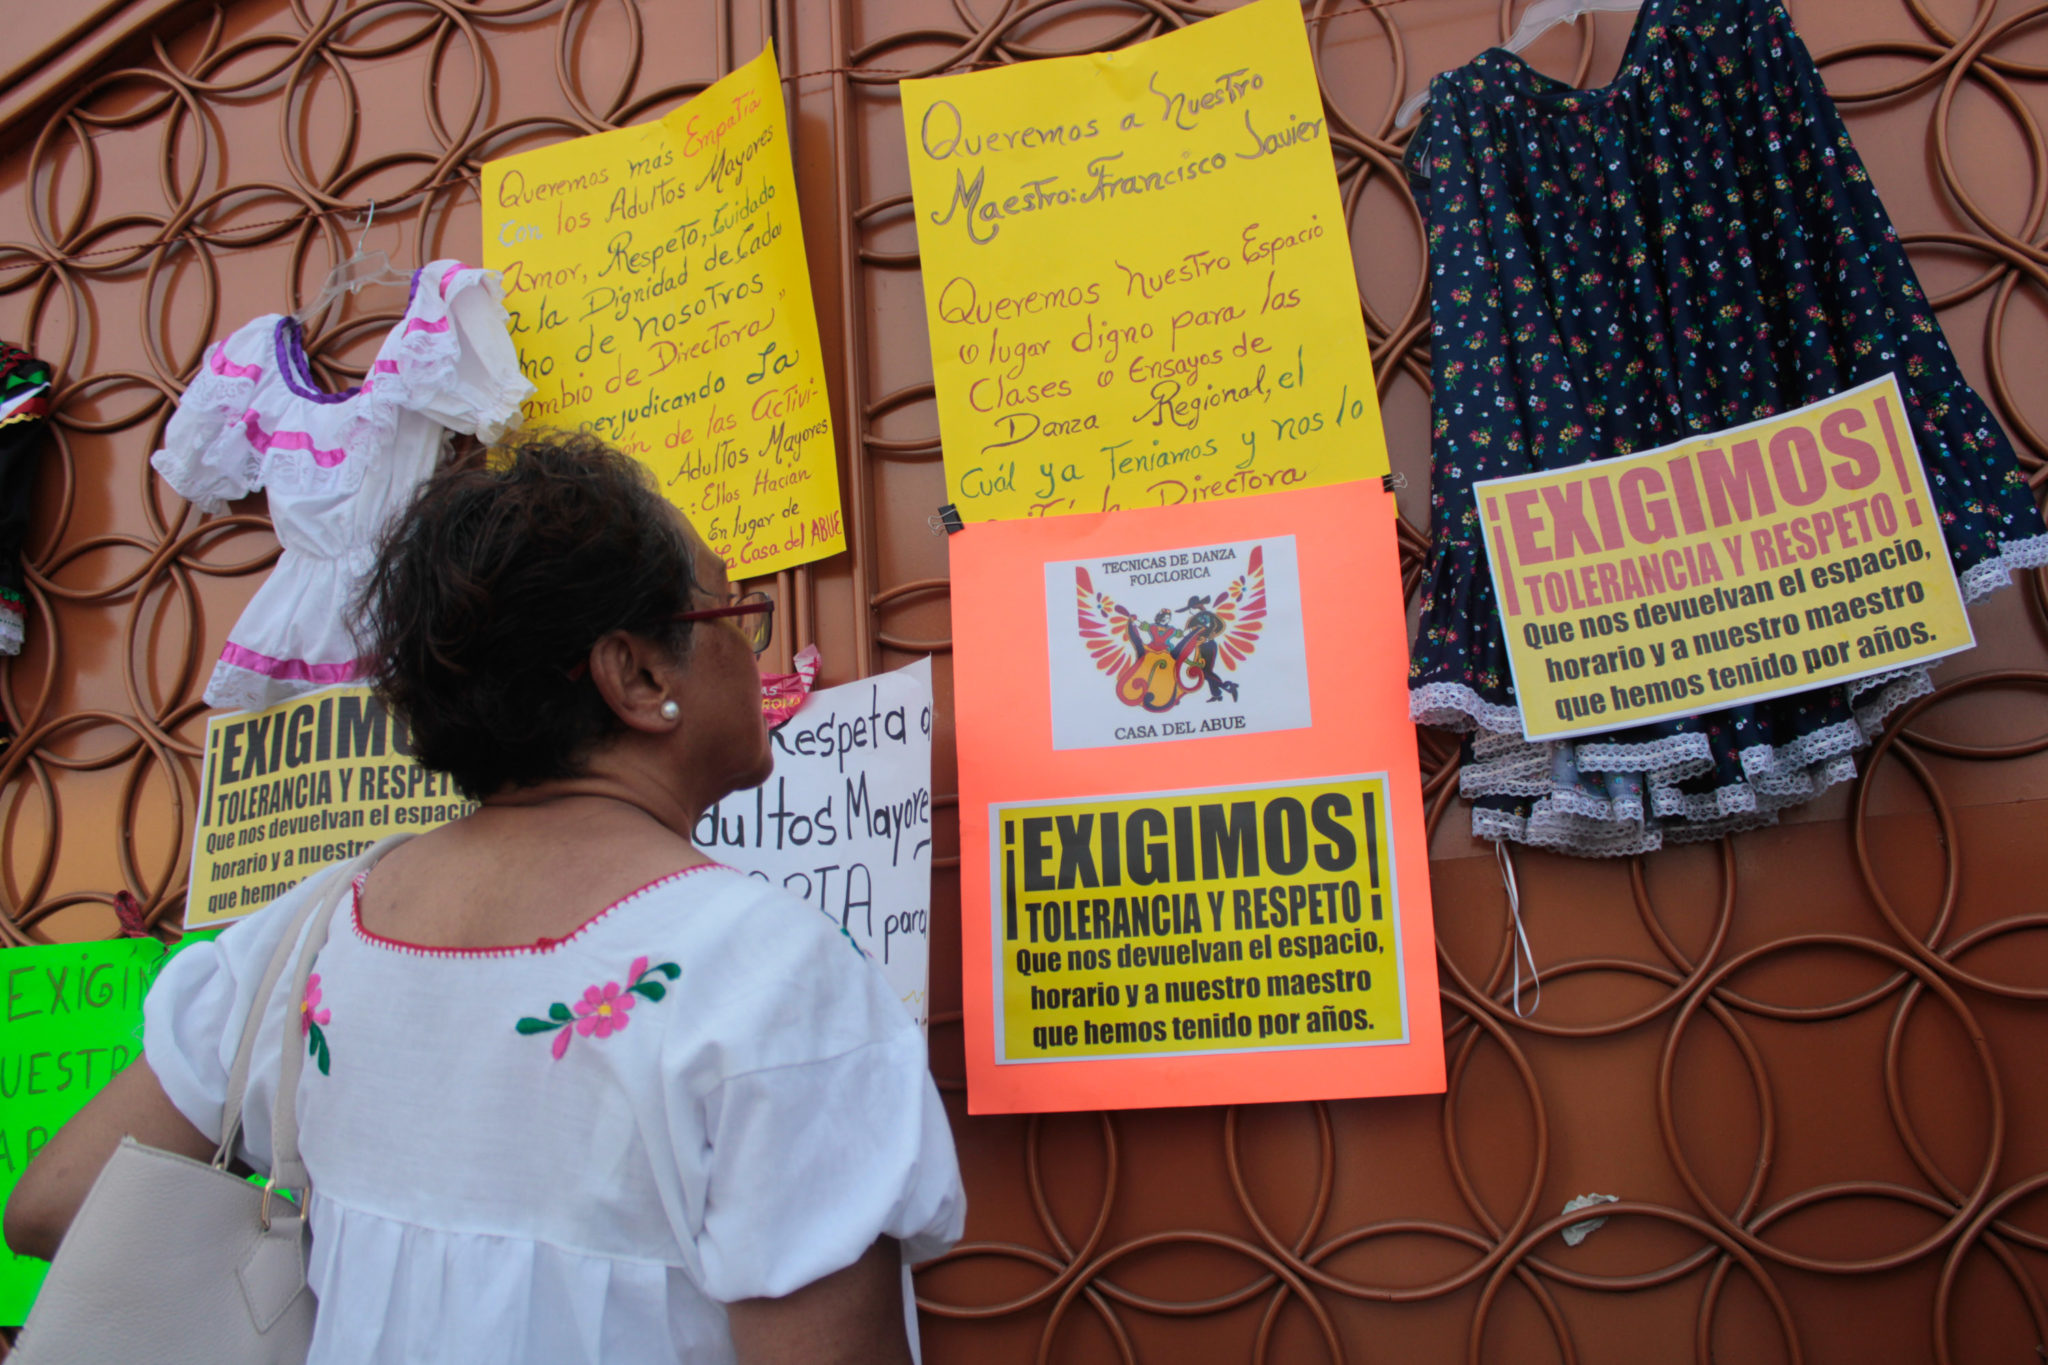 Queremos más Empatía
Con los Adultos Mayores
Amor, Respeto, Cuidado
a la Dignidad de Cada
no de nosotros
ambio de Directora"
perjudicando La
ón de las Activi-
Adultos Mayores
: Ellos Hacian
En lugar de
La Casa del ABUE
Queremos a Nuestro
Maestro: Francisco Javier
Queremos Nuestro Espacio
o lugar digno para las
Clases o Ensayos de
Danza Regional, el
Cuál ya Teniamos y nos lo
Directora
TECNICAS DE DANZA
FOLCLORICA
CASA DEL ABUE
¡EXIGIMOS
TOLERANCIA Y RESPETO!
Que nos devuelvan el espacio,
horario y a nuestro maestro
que hemos tenido por años.
¡EXIGIMOS
TOLERANCIA Y RESPETO!
Que nos devuelvan el espacio,
horario y a nuestro maestro
que hemos tenido por años.
¡EXIGIM
TOLERANCIA Y RESPET
Que nos devuelvan el espacio
horario y a nuestr
que hemos
Respeta a
dultos Mayore
para
EXIGIM
UESTR